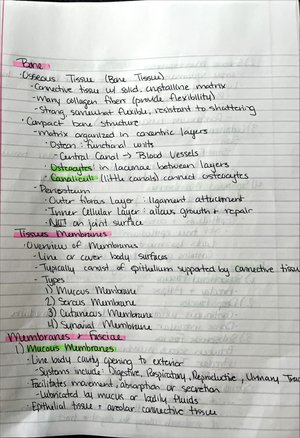 Bone
- Osseous Tissue (Bone Tissue)
- Connective tissue w/ solid, crystalline matrix
- Many collagen fibers (provide flexibility)
- Strong, somewhat flexible, resistant to shattering
- Compact bone structure
- matrix organized in concentric layers
- Osteon: functional units
- Central Canal → Blood Vessels
- Osteocytes: in lacunae between layers
- Canaliculi (little canals) connect osteocytes
- Periosteum
- Outer fibrous Layer: ligament attachment
- Inner Cellular Layer: allows growth + repair
- NOT on joint surface
Tissues Membranes
- Overview of Membranes
- Line or cover body surfaces
- Typically consist of epithelium supported by connective tissue
- Types
1) Mucous Membrane
2) Serous Membrane
3) Cutaneous Membrane
4) Synovial Membrane
Membranes + Fasciae
1) Mucous Membranes
- Line body cavity opening to exterior
- Systems include: Digestive, Respiratory, Reproductive, Urinary
- Facilitates movement, absorption or secretion
- Lubricated by mucus or bodily fluids
- Epithelial tissue + areolar connective tissue